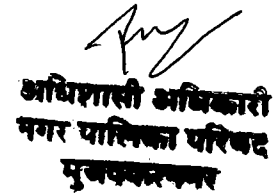 अधिशासी अधिकारी
नगर पालिका परिषद
मुजफ्फरनगर